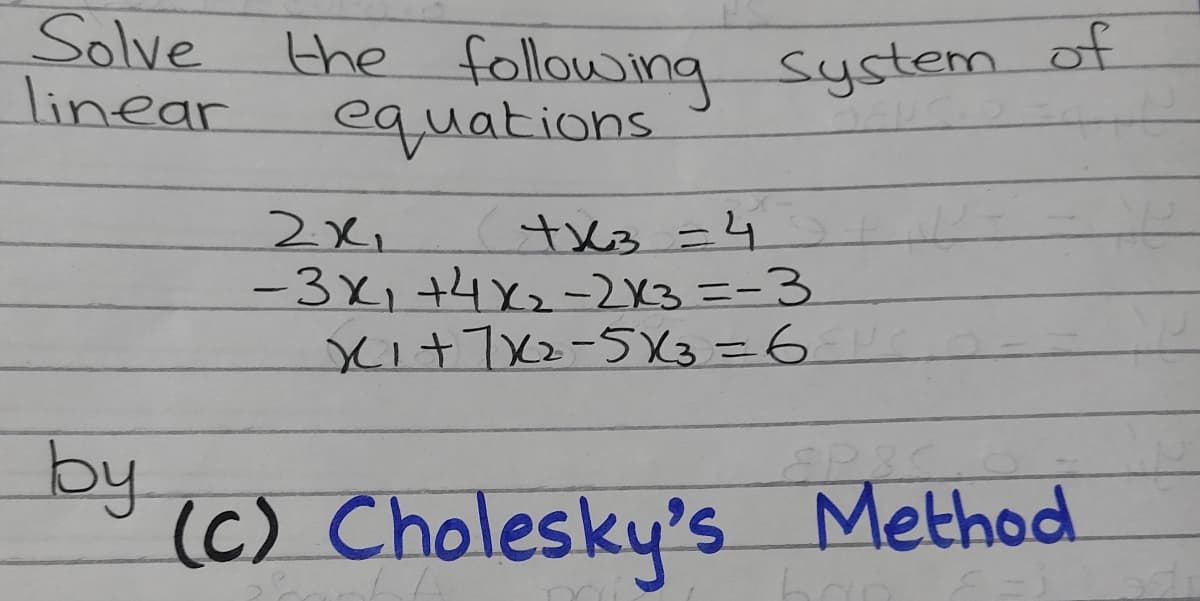 Solve the following system of
linear equations
2x₁ +x₃ = 4
-3x₁ +4x₂ -2x₃ = -3
x₁ + 7x₂ - 5x₃ = 6
by
(C) Cholesky's Method